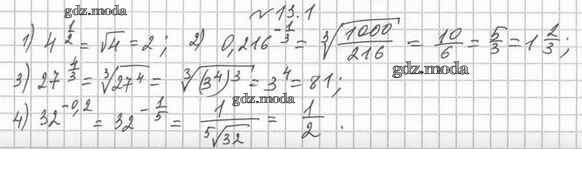 № 13.1
1) 4^{1/2} = √4 = 2; 2) 0,216^{-1/3} = ∛(1000/216) = 10/6 = 5/3 = 1 2/3;
gdz.moda
3) 27^{4/3} = ∛(27^4) = ∛((3^4)^3) = 3^4 = 81;
gdz.moda
4) 32^{-0,2} = 32^{-1/5} = 1/⁵√32 = 1/2.